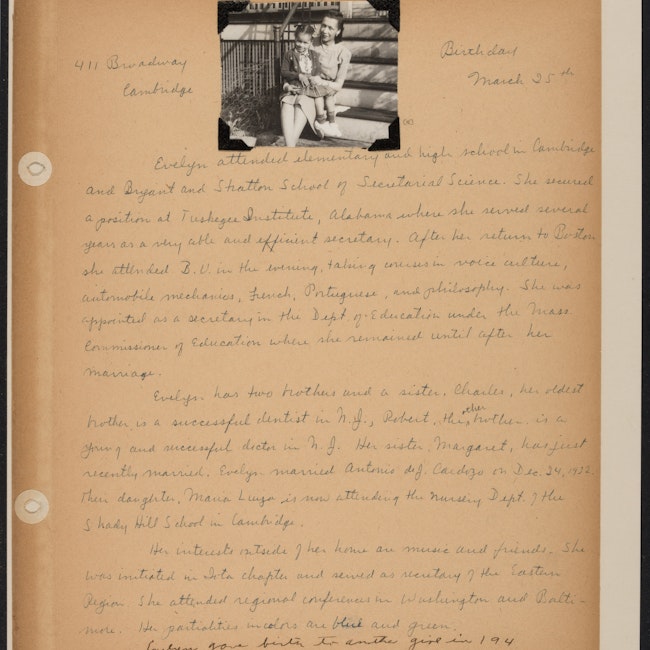 411 Broadway
Cambridge
Birthday
March 25th
Evelyn attended elementary and high school in Cambridge
and Bryant and Stratton School of Secretarial Science. She secured
a position at Tuskegee Institute, Alabama where she served several
years as a very able and efficient secretary. After her return to Boston
she attended B.U. in the evening, taking courses in voice culture,
automobile mechanics, French, Portuguese, and philosophy. She was
appointed as a secretary in the Dept. of Education under the Mass.
Commissioner of Education where she remained until after her
marriage.
Evelyn has two brothers and a sister. Charles, her oldest
brother, is a successful dentist in N.J., Robert, the other brother, is a
young and successful doctor in N.J. Her sister, Margaret, has just
recently married. Evelyn married Antonio deJ. Cardozo on Dec. 24,
Their daughter, Maria Luiza is now attending the Nursery Dept. of the
Shady Hill School in Cambridge.
Her interests outside of her home are music and friends. She
was initiated in Iota chapter and served as secretary of the Eastern
Region. She attended regional conferences in Washington and Balti-
more. Her partialities in colors are blue and green.
Evelyn gave birth to another girl in 194